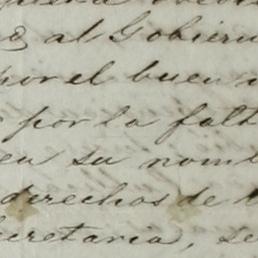 al Gobiern
por el buen
por la falt
en su nomb
derechos de
cretaria, se